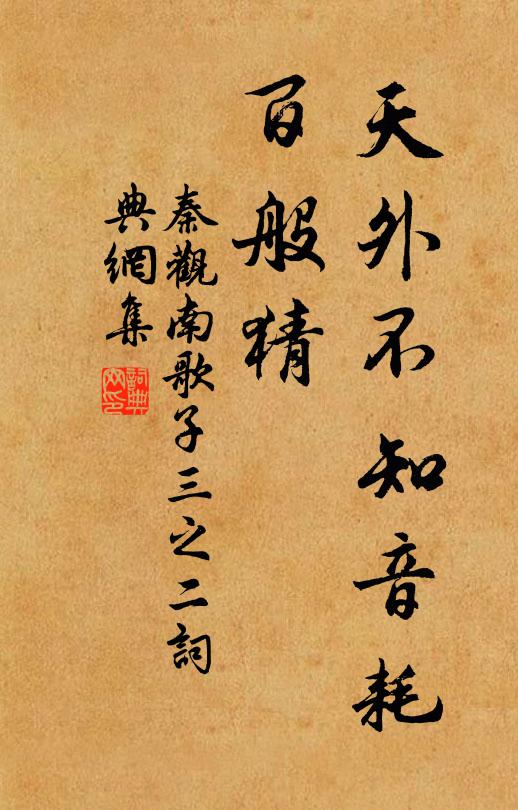 天外不知音耗
百般猜
秦觀南歌子三之二詞
典網集
詞典
网印